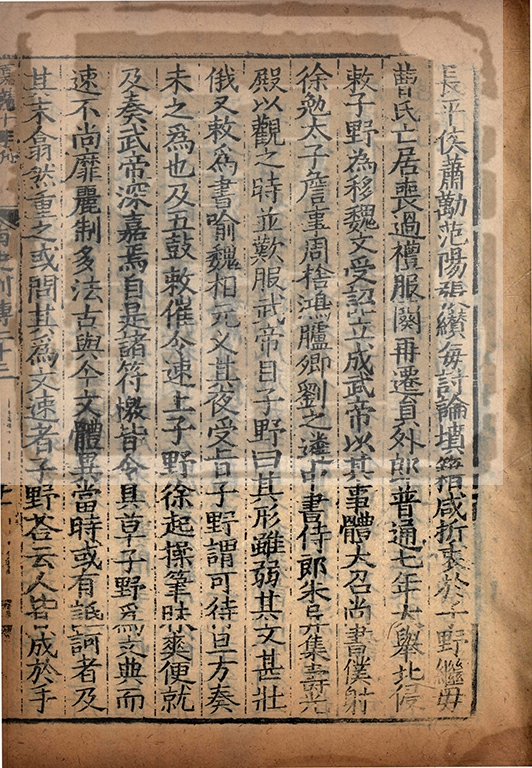 長平侯蕭勱范陽張纘每討論墳籍咸折衷於子野繼母
曹氏亡居喪過禮服闋再遷員外郎普通七年大舉北侵
敕子野為移魏文受詔立成武帝以其事體大召尚書僕射
徐勉太子詹事周捨鴻臚卿劉之遴中書侍郎朱异集壽光
殿以觀之時並歎服武帝目子野曰其形雖弱其文甚壯
俄又敕為書喻魏相元乂其夜受旨子野謂可待旦方奏
未之為也及五鼓敕催令速上子野徐起操筆昧爽便就
及奏武帝深嘉焉自是諸符檄皆令具草子野為文典而
速不尚靡麗制多法古與今文體異當時或有詆訶者及
其末翕然重之或問其為文速者子野荅云人皆成於手
南史列傳二十三